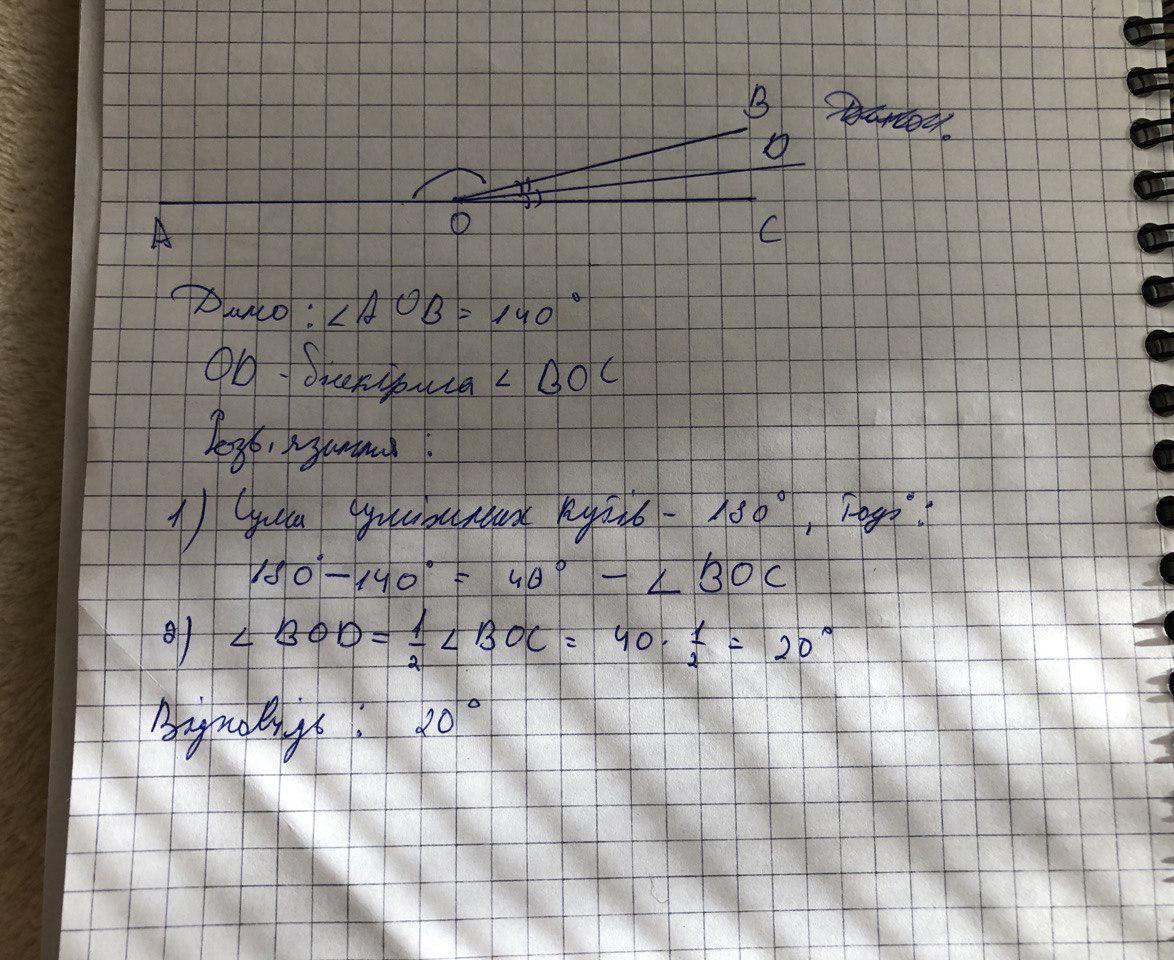 B
D
A
O
C
Дано: ∠AOB = 140°
OD - бісектриса ∠ BOC
Розв'язання:
1) Сума суміжних кутів - 180°, тоді:
180° - 140° = 40° - ∠ BOC
2) ∠ BOD = 1/2 ∠ BOC = 40 · 1/2 = 20°
Відповідь: 20°